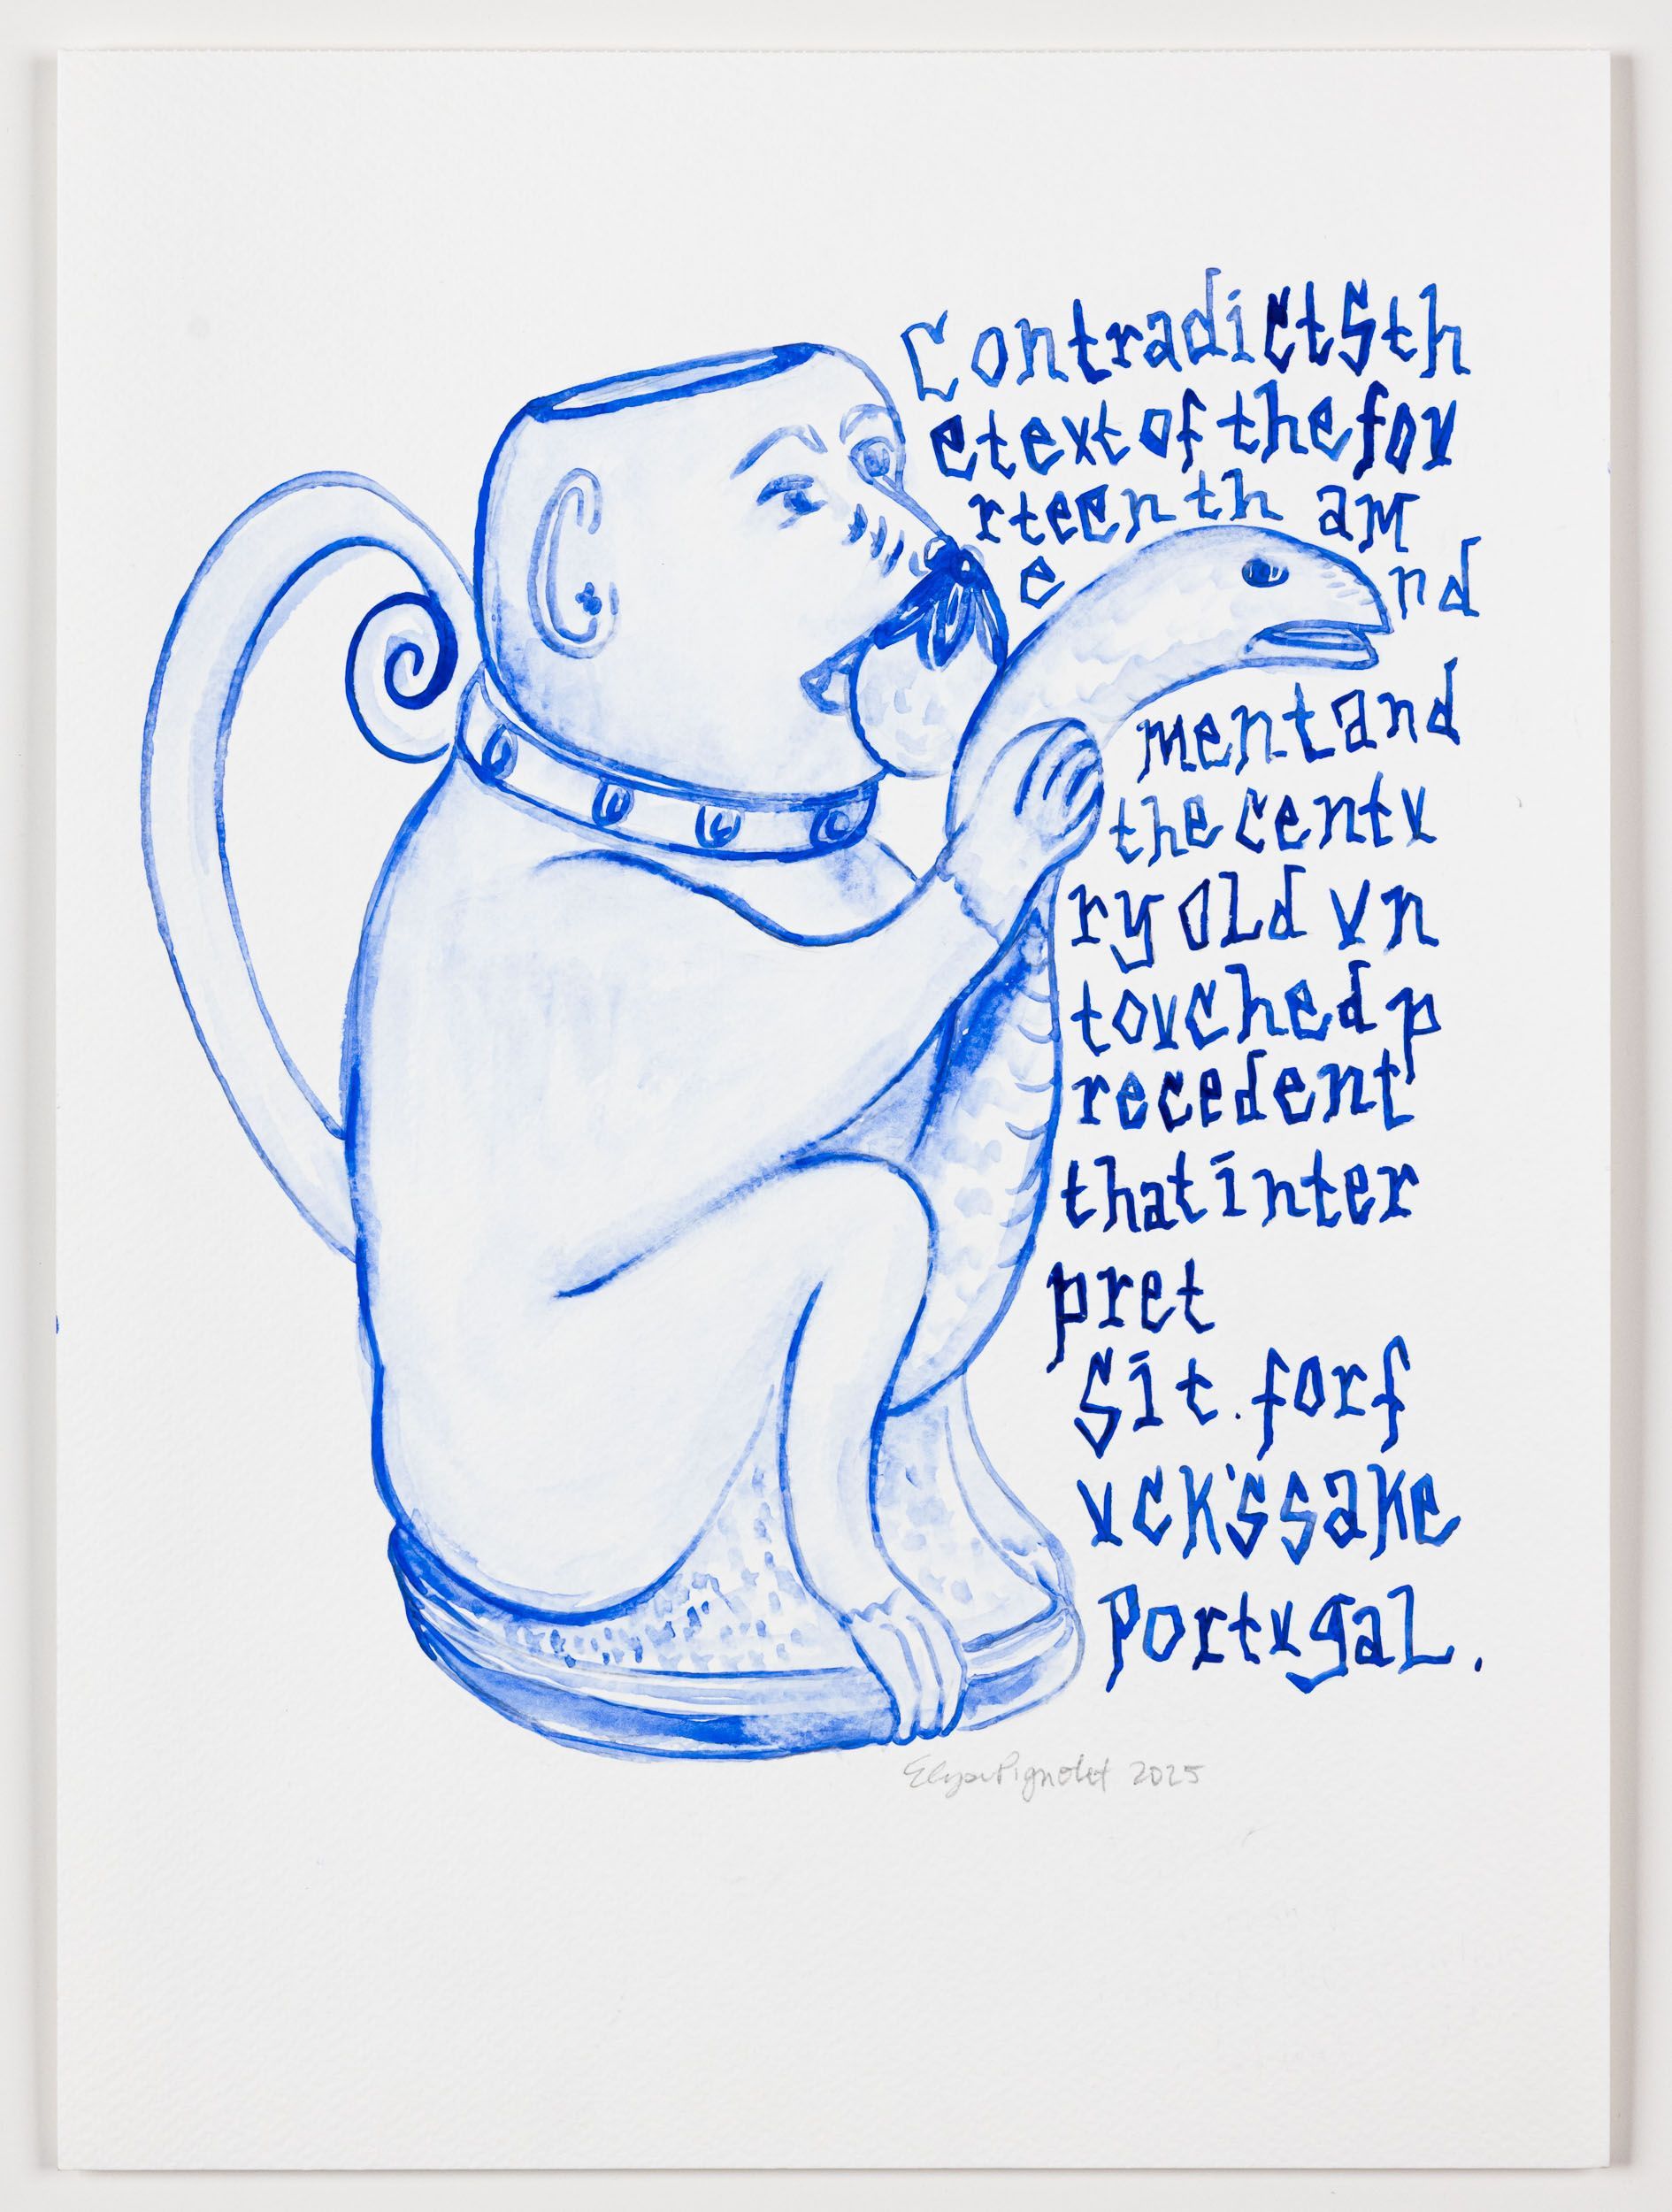 Contradictsth
etext of the fov
rteenth am
e nd
ment and
the centv
ry old vn
tovched p
recedent
that inter
pret
sit. for f
vck's sake
Portvgal.
Elyse Pignolet 2025